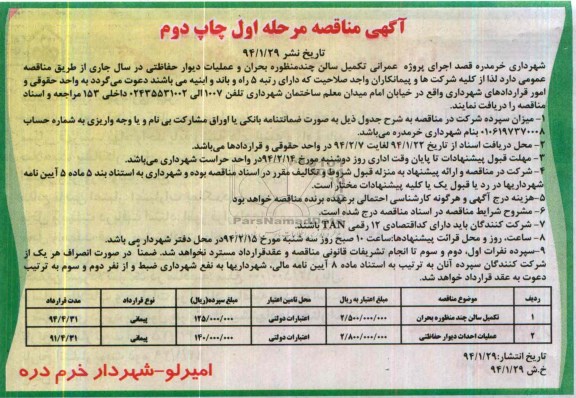 آگهی مناقصه مرحله اول چاپ دوم
تاریخ نشر ۹۴/۱/۲۹
شهرداری خرمدره قصد اجرای پروژه عمرانی تکمیل سالن چندمنظوره بحران و عملیات دیوار حفاظتی در سال جاری از طریق مناقصه
عمومی دارد لذا از کلیه شرکت ها و پیمانکاران واجد صلاحیت که دارای رتبه ۵ راه و باند و ابنیه می باشند دعوت می‌گردد به واحد حقوقی و
امور قراردادهای شهرداری واقع در خیابان امام میدان معلم ساختمان شهرداری تلفن ۱۰۰۷ الی ۰۲۴۳۵۵۳۱۰۰۲ داخلی ۱۵۳ مراجعه و اسناد
مناقصه را دریافت نمایند.
۱- میزان سپرده شرکت در مناقصه به شرح جدول ذیل به صورت ضمانتنامه بانکی یا اوراق مشارکت بی نام و یا وجه واریزی به شماره حساب
۰۱۰۶۱۹۷۳۷۰۰۰۸ بنام شهرداری خرمدره می‌باشد.
۲- محل دریافت اسناد از تاریخ ۹۴/۱/۲۲ لغایت ۹۴/۲/۷ در واحد حقوقی و قراردادها می‌باشد.
۳- مهلت قبول پیشنهادات تا پایان وقت اداری روز دوشنبه مورخ ۹۴/۲/۱۴در واحد حراست شهرداری می‌باشد.
۴- شرکت در مناقصه و ارائه پیشنهاد به منزله قبول شروط و تکالیف مقرر در اسناد مناقصه بوده و شهرداری به استناد بند ۵ ماده ۵ آیین نامه
شهرداریها در رد یا قبول یک یا کلیه پیشنهادات مختار است.
۵-هزینه درج آگهی و هرگونه کارشناسی احتمالی برعهده برنده مناقصه خواهد بود
۶- مشروح شرایط مناقصه در اسناد مناقصه درج شده است.
۷- شرکت کنندگان باید دارای کداقتصادی ۱۲ رقمی TAN باشند.
۸- ساعت، روز و محل قرائت پیشنهادها:ساعت ۱۰ صبح روز سه شنبه مورخ ۹۴/۲/۱۵در محل دفتر شهردار می باشد.
۹-سپرده نفرات اول، دوم و سوم تا انجام تشریفات قانونی مناقصه و عقدقرارداد مسترد نخواهد شد. ضمنا در صورت انصراف هر یک از
شرکت کنندگان سپرده آنان به ترتیب به استناد ماده ۸ آئین نامه مالی، شهرداریها به نفع شهرداری ضبط و از نفر دوم و سوم به ترتیب
دعوت به عقد قرارداد خواهد شد.
ردیف موضوع مناقصه مبلغ اعتبار به ریال محل تامین اعتبار مبلغ سپرده(ریال) نوع قرارداد مدت قرارداد
۱ تکمیل سالن چند منظوره بحران ۲/۵۰۰/۰۰۰/۰۰۰ اعتبارات دولتی ۱۲۵/۰۰۰/۰۰۰ پیمانی ۹۴/۴/۳۱
۲ عملیات احداث دیوار حفاظتی ۲/۸۰۰/۰۰۰/۰۰۰ اعتبارات دولتی ۱۴۰/۰۰۰/۰۰۰ پیمانی ۹۱/۴/۳۱
تاریخ انتشار:۹۴/۱/۲۹
خ.ش ۹۴/۱/۲۹
امیرلو-شهردار خرم دره